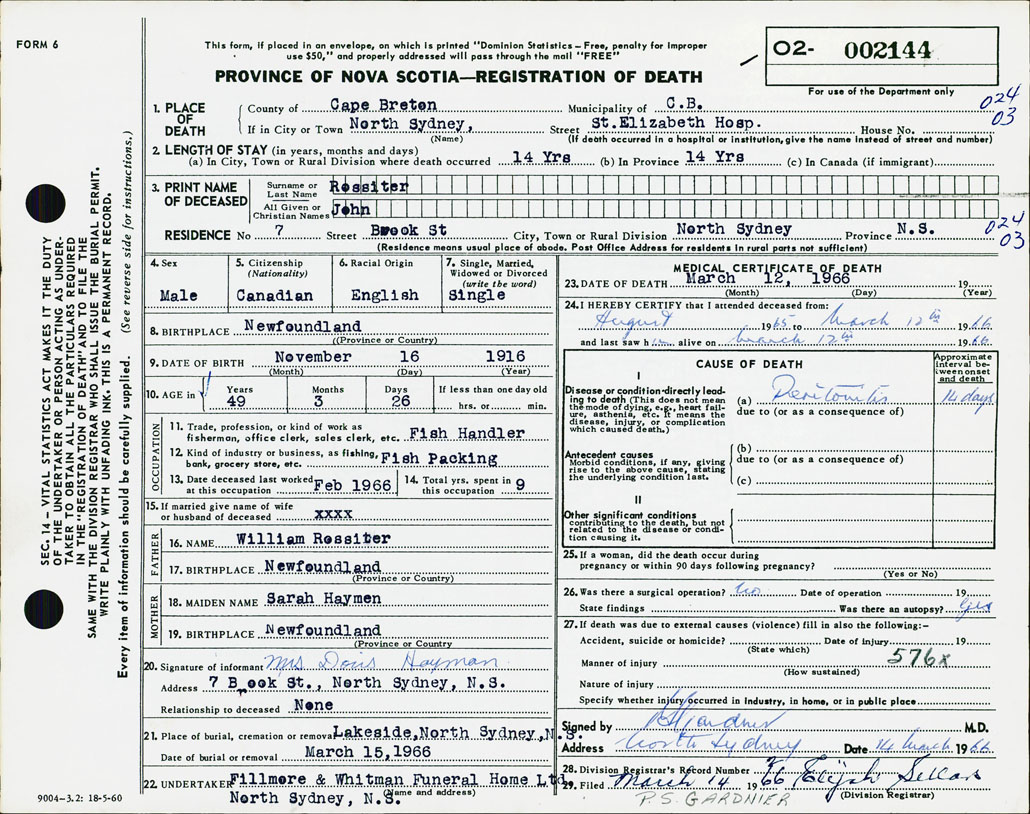 FORM 6
This form, if placed in an envelope, on which is printed "Dominion Statistics – Free, penalty for improper
use $50," and properly addressed will pass through the mail "FREE"
PROVINCE OF NOVA SCOTIA—REGISTRATION OF DEATH
02- 002144
For use of the Department only
024
03
1. PLACE OF DEATH
County of Cape Breton Municipality of C.B.
If in City or Town North Sydney, Street St.Elizabeth Hosp. House No.
(Name) (If death occurred in a hospital or institution, give the name instead of street and number)
2. LENGTH OF STAY (in years, months and days)
(a) In City, Town or Rural Division where death occurred 14 Yrs (b) In Province 14 Yrs (c) In Canada (if immigrant)
3. PRINT NAME OF DECEASED
Surname or Last Name Rossiter
All Given or Christian Names John
RESIDENCE No 7 Street Brook St City, Town or Rural Division North Sydney Province N.S.
024
03
(Residence means usual place of abode. Post Office Address for residents in rural parts not sufficient)
4. Sex
Male
5. Citizenship
(Nationality)
Canadian
6. Racial Origin
English
7. Single, Married,
Widowed or Divorced
(write the word)
Single
8. BIRTHPLACE Newfoundland
(Province or Country)
9. DATE OF BIRTH November 16 1916
(Month) (Day) (Year)
10. AGE in Years Months Days If less than one day old
49 3 26 hrs. or min.
OCCUPATION
11. Trade, profession, or kind of work as
fisherman, office clerk, sales clerk, etc. Fish Handler
12. Kind of industry or business, as fishing,
bank, grocery store, etc. Fish Packing
13. Date deceased last worked
at this occupation Feb 1966
14. Total yrs. spent in
this occupation 9
15. If married give name of wife
or husband of deceased xxxx
FATHER
16. NAME William Rossiter
17. BIRTHPLACE Newfoundland
(Province or Country)
MOTHER
18. MAIDEN NAME Sarah Haymen
19. BIRTHPLACE Newfoundland
(Province or Country
20. Signature of informant Mrs Doris Hayman
Address 7 Brook St., North Sydney, N.S.
Relationship to deceased None
21. Place of burial, cremation or removal Lakeside,North Sydney,N.S.
Date of burial or removal March 15,1966
22. UNDERTAKER Fillmore & Whitman Funeral Home Ltd.
(Name and address)
North Sydney, N.S.
9004–3.2: 18-5-60
MEDICAL CERTIFICATE OF DEATH
23. DATE OF DEATH March 12, 1966 19
(Month) (Day) (Year)
24. I HEREBY CERTIFY that I attended deceased from:
August 1965 to March 12th 1966
and last saw him alive on March 12th 1966
CAUSE OF DEATH
Approximate
interval be-
tween onset
and death
I
Disease or condition-directly lead-
ing to death (This does not mean
the mode of dying, e.g., heart fail-
ure, asthenia, etc. It means the
disease, injury, or complication
which caused death.)
(a) Peritonitis 14 days
due to (or as a consequence of)
Antecedent causes
Morbid conditions, if any, giving
rise to the above cause, stating
the underlying condition last.
(b)
due to (or as a consequence of)
(c)
II
Other significant conditions
contributing to the death, but not
related to the disease or condi-
tion causing it.
25. If a woman, did the death occur during
pregnancy or within 90 days following pregnancy?
(Yes or No)
26. Was there a surgical operation? No Date of operation 19
State findings Was there an autopsy? Yes
27. If death was due to external causes (violence) fill in also the following:–
Accident, suicide or homicide? Date of injury 19
(State which)
576x
Manner of injury
(How sustained)
Nature of injury
Specify whether injury occurred in industry, in home, or in public place
Signed by Gardner M.D.
Address North Sydney Date 14 March 1966
28. Division Registrar's Record Number
29. Filed March 14 1966 Elijah
(Division Registrar)
P.S. GARDNIER
SEC. 14 – VITAL STATISTICS ACT MAKES IT THE DUTY
OF THE UNDERTAKER OR PERSON ACTING AS UNDER-
TAKER TO OBTAIN ALL THE PARTICULARS REQUIRED
IN THE "REGISTRATION OF DEATH" AND TO FILE THE
SAME WITH THE DIVISION REGISTRAR WHO SHALL ISSUE THE BURIAL PERMIT.
WRITE PLAINLY WITH UNFADING INK. THIS IS A PERMANENT RECORD.
Every item of information should be carefully supplied. (See reverse side for instructions.)